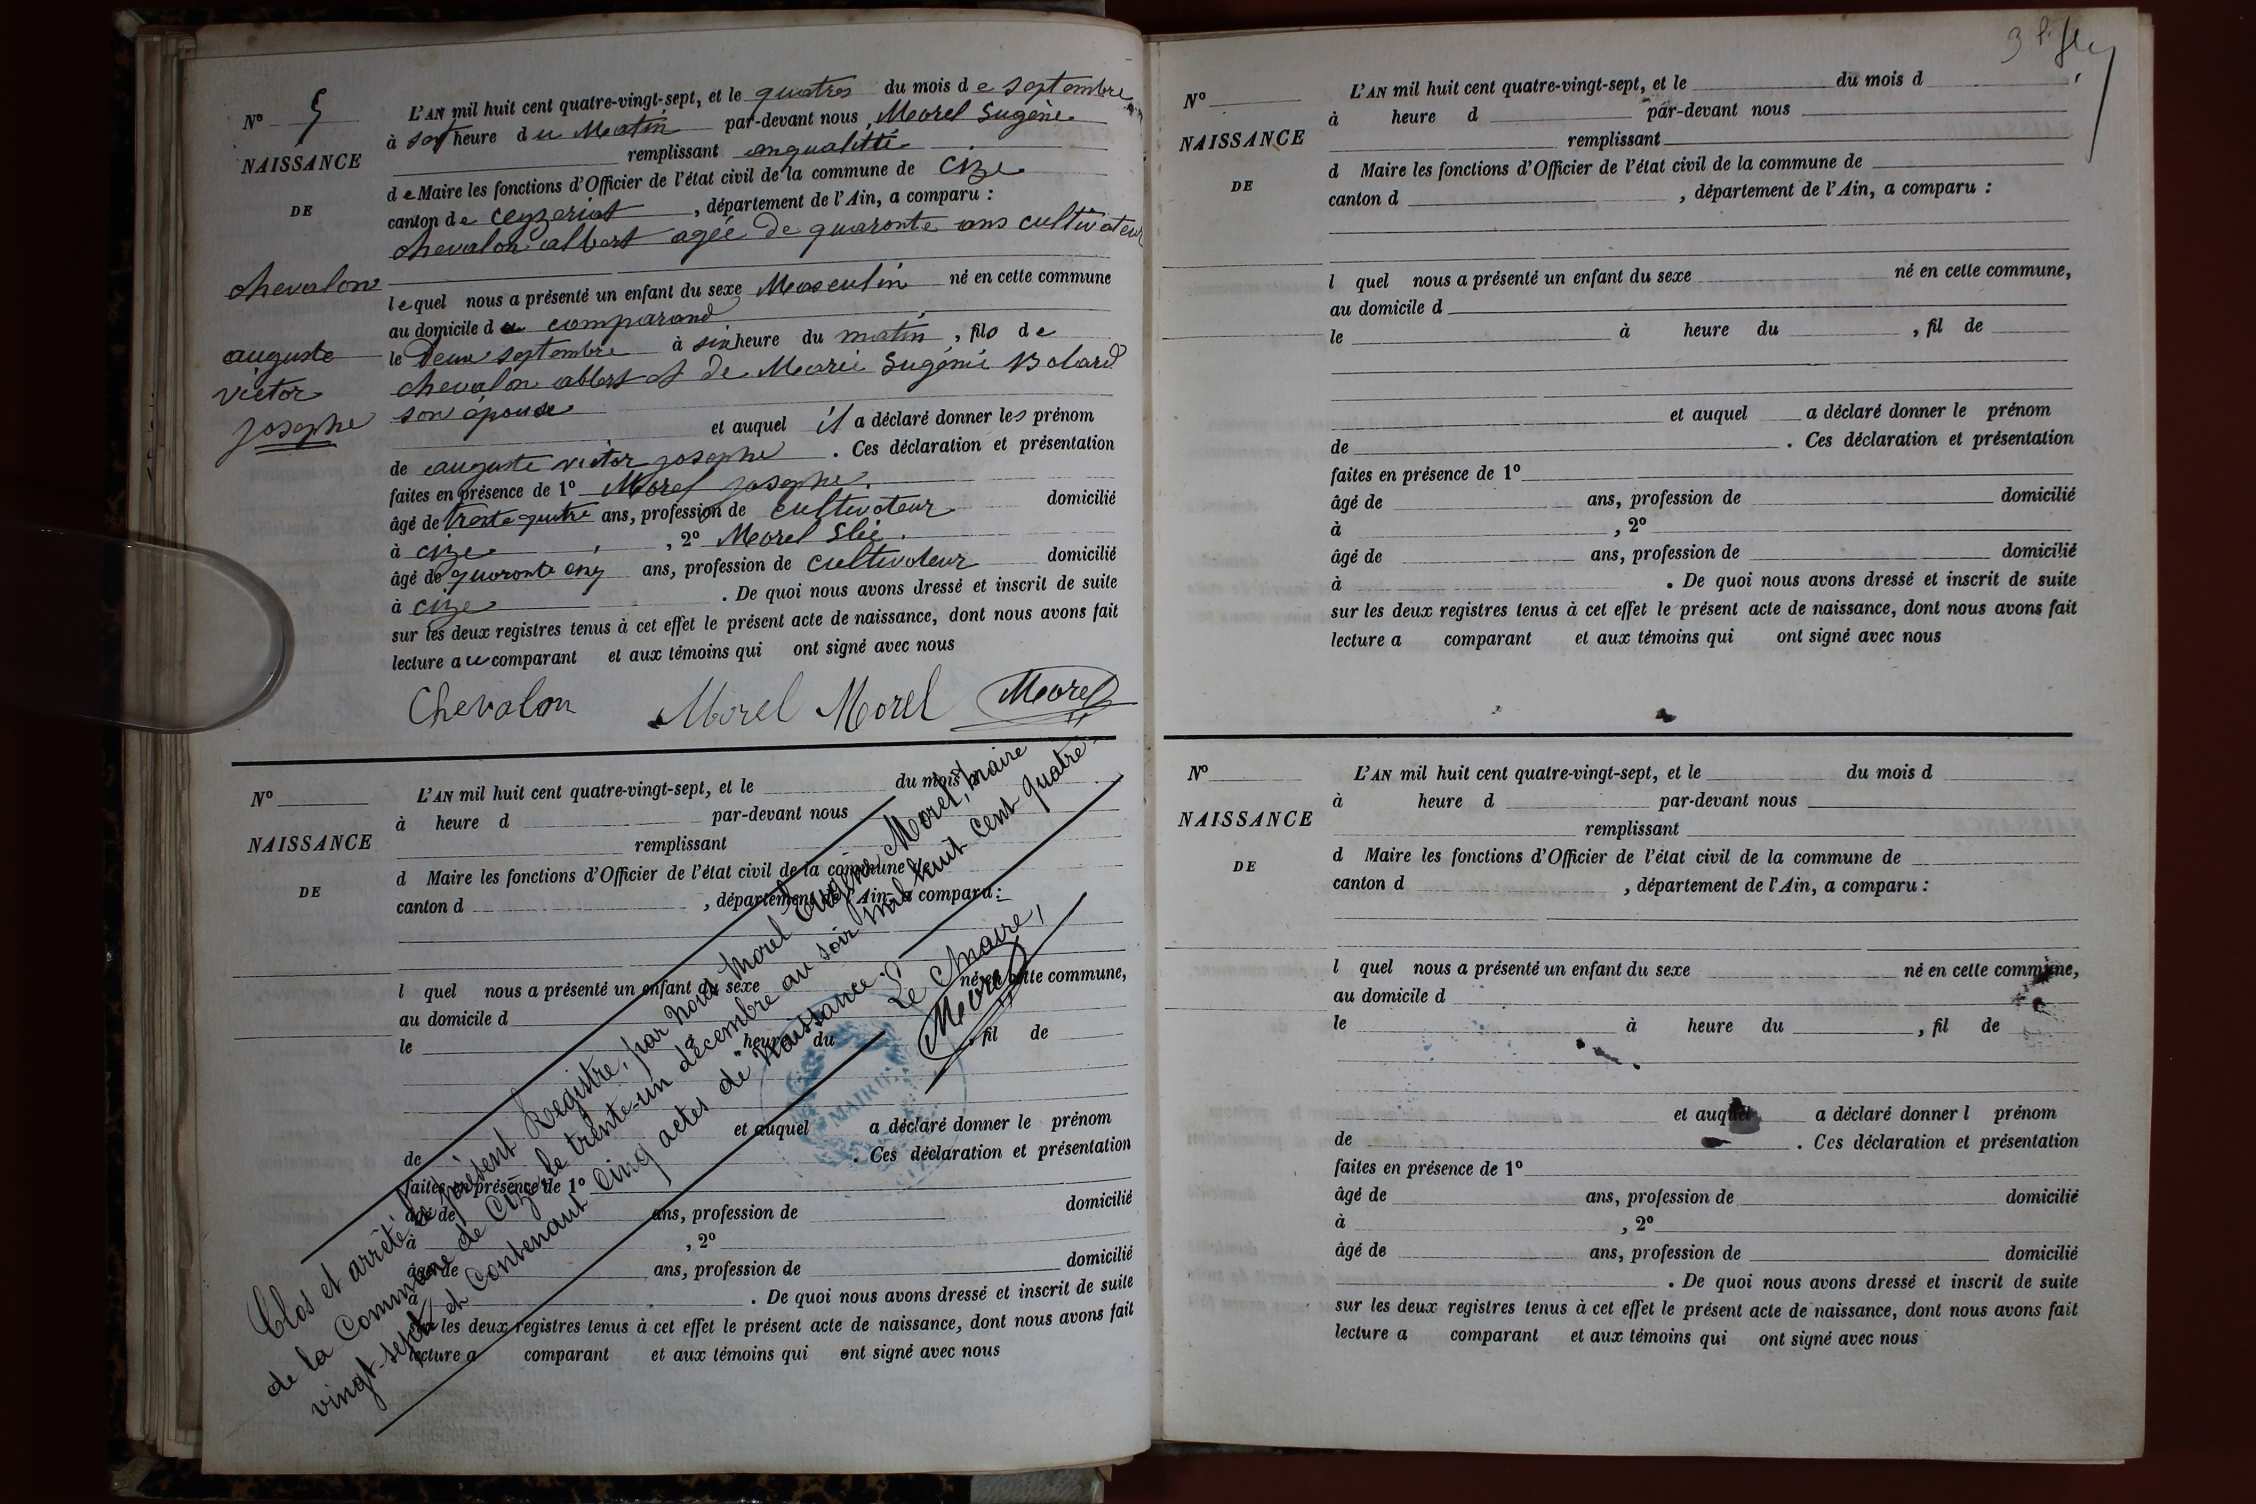 N° 5
NAISSANCE
DE
chevalon
auguste
victor
josephe
L'AN mil huit cent quatre-vingt-sept, et le quatres du mois de septembre
à sept heure du Matin par-devant nous, Morel Eugène
remplissant enqualitté
de Maire les fonctions d'Officier de l'état civil de la commune de Cize
canton de ceyzeriat, département de l'Ain, a comparu :
chevalon albert agée de quaronte ans cultivateur
lequel nous a présenté un enfant du sexe Masculin né en cette commune
au domicile du comparand
le Deux septembre à six heure du matin, fils de
chevalon albert et de Marie Eugénie Bolard
son épouse
et auquel il a déclaré donner les prénom
de auguste victor josephe. Ces déclaration et présentation
faites en présence de 1° Morel josephe.
âgé de trente quatre ans, profession de cultivateur domicilié
à cize, 2° Morel Elie.
âgé de quaronte cinq ans, profession de cultivateur domicilié
à cize. De quoi nous avons dressé et inscrit de suite
sur les deux registres tenus à cet effet le présent acte de naissance, dont nous avons fait
lecture au comparant et aux témoins qui ont signé avec nous
Chevalon Morel Morel Morel
N°
NAISSANCE
DE
L'AN mil huit cent quatre-vingt-sept, et le du mois
à heure d par-devant nous
remplissant
d Maire les fonctions d'Officier de l'état civil de la commune
canton d , département de l'Ain, a comparu :
l quel nous a présenté un enfant du sexe né en cette commune,
au domicile d
le à heure du , fil de
et auquel a déclaré donner le prénom
de . Ces déclaration et présentation
faites en présence de 1°
âgé de ans, profession de domicilié
à , 2°
âgé de ans, profession de domicilié
à . De quoi nous avons dressé et inscrit de suite
sur les deux registres tenus à cet effet le présent acte de naissance, dont nous avons fait
lecture a comparant et aux témoins qui ont signé avec nous
Clos et arrêté le présent Registre, par nous Morel Eugène Morel, maire
de la Commune de Cize le trente-un décembre au soir mil huit cent quatre-
vingt-sept et contenant Cinq actes de Naissance.
Le Maire,
Morel
MAIRIE
N°
NAISSANCE
DE
L'AN mil huit cent quatre-vingt-sept, et le du mois d
à heure d par-devant nous
remplissant
d Maire les fonctions d'Officier de l'état civil de la commune de
canton d , département de l'Ain, a comparu :
l quel nous a présenté un enfant du sexe né en cette commune,
au domicile d
le à heure du , fil de
et auquel a déclaré donner le prénom
de . Ces déclaration et présentation
faites en présence de 1°
âgé de ans, profession de domicilié
à , 2°
âgé de ans, profession de domicilié
à . De quoi nous avons dressé et inscrit de suite
sur les deux registres tenus à cet effet le présent acte de naissance, dont nous avons fait
lecture a comparant et aux témoins qui ont signé avec nous
N°
NAISSANCE
DE
L'AN mil huit cent quatre-vingt-sept, et le du mois d
à heure d par-devant nous
remplissant
d Maire les fonctions d'Officier de l'état civil de la commune de
canton d , département de l'Ain, a comparu :
l quel nous a présenté un enfant du sexe né en cette commune,
au domicile d
le à heure du , fil de
et auquel a déclaré donner l prénom
de . Ces déclaration et présentation
faites en présence de 1°
âgé de ans, profession de domicilié
à , 2°
âgé de ans, profession de domicilié
. De quoi nous avons dressé et inscrit de suite
sur les deux registres tenus à cet effet le présent acte de naissance, dont nous avons fait
lecture a comparant et aux témoins qui ont signé avec nous